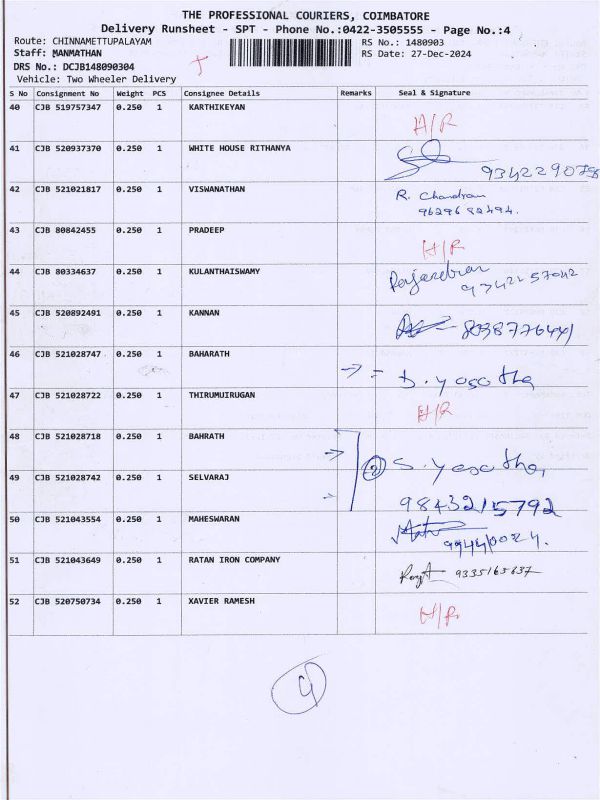 THE PROFESSIONAL COURIERS, COIMBATORE
Delivery Runsheet - SPT - Phone No.:0422-3505555 - Page No.:4
Route: CHINNAMETTUPALAYAM RS No.: 1480903
Staff: MANMATHAN RS Date: 27-Dec-2024
DRS No.: DCJB148090304
Vehicle: Two Wheeler Delivery
S No Consignment No Weight PCS Consignee Details Remarks Seal & Signature
40 CJB 519757347 0.250 1 KARTHIKEYAN
H/R
41 CJB 520937370 0.250 1 WHITE HOUSE RITHANYA
42 CJB 521021817 0.250 1 VISWANATHAN
R. Chandran
9629682494.
43 CJB 80842455 0.250 1 PRADEEP
H/R
44 CJB 80334637 0.250 1 KULANTHAISWAMY
45 CJB 520892491 0.250 1 KANNAN
46 CJB 521028747 0.250 1 BAHARATH
D. yasotha
47 CJB 521028722 0.250 1 THIRUMUIRUGAN
H/R
48 CJB 521028718 0.250 1 BAHRATH
S. yasotha,
49 CJB 521028742 0.250 1 SELVARAJ
9843215792
50 CJB 521043554 0.250 1 MAHESWARAN
51 CJB 521043649 0.250 1 RATAN IRON COMPANY
9335165637
52 CJB 520750734 0.250 1 XAVIER RAMESH
H/R
4